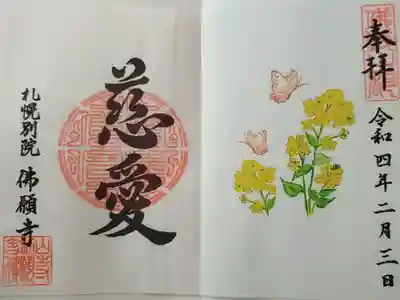 奉拝
令和四年二月三日
慈愛
札幌別院 佛願寺